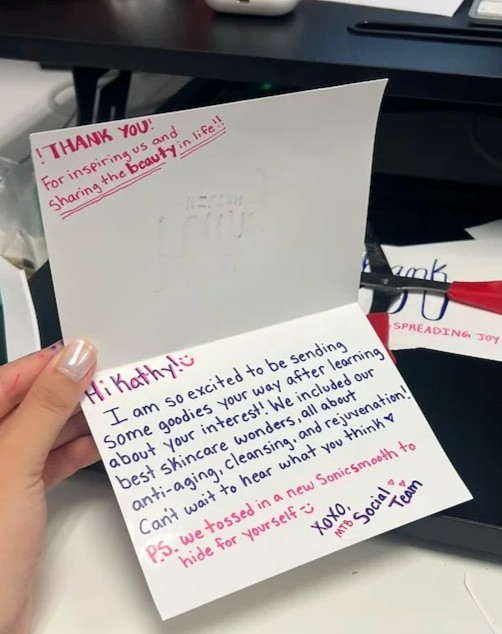 ! THANK YOU!
For inspiring us and
Sharing the beauty in life!!
Hi Kathy!
I am so excited to be sending
some goodies your way after learning
about your interest! We included our
best skincare wonders, all about
anti-aging, cleansing, and rejuvenation!
Can't wait to hear what you think ♥
P.S. we tossed in a new Sonicsmooth to
hide for yourself
XOXO,
MTB Social
Team
SPREADING JOY